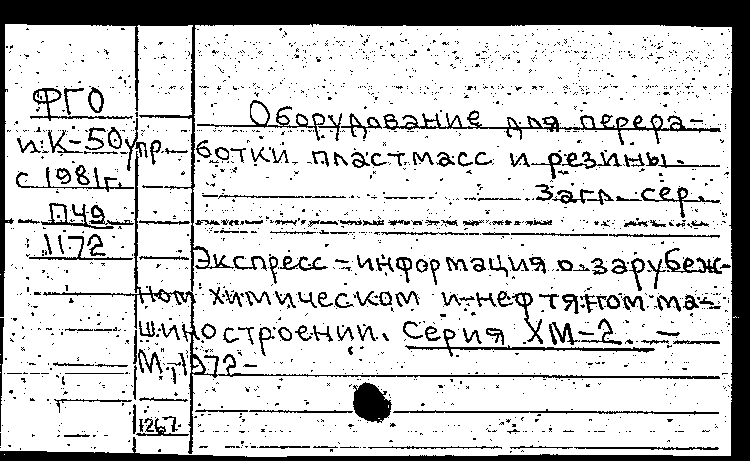 ФГО
и К-50упр.
с 1981г.
П49
1172
Оборудование для перера-
ботки пластмасс и резины.
Загл. сер.
Экспресс-информация о зарубеж-
ном химическом и нефтяном ма-
шиностроении. Серия ХМ-2. —
М., 1972-
1267